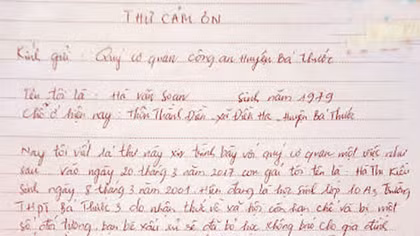 THƯ CẢM ƠN
Kính gửi : Quý cơ quan công an Huyện Bá Thước
Tên tôi là : Hà Văn Soan Sinh năm 1979
Chỗ ở hiện nay : Thôn Thành Điền - xã Điền Hạ - Huyện Bá Thước
Nay tôi viết lá thư này xin trình bày với quý cơ quan một việc như
sau . vào ngày 20 tháng 3 năm 2017 con gái tôi tên là : Hà Thị Kiều
Sinh ngày 8 tháng 3 năm 2001 . Hiện đang là học sinh lớp 10 A3 Trường
THPT Bá Thước 3 do nhận thức về xã hội còn hạn chế và bị một
số đối tượng bạn bè xấu rủ rê đã bỏ học không báo cho gia đình